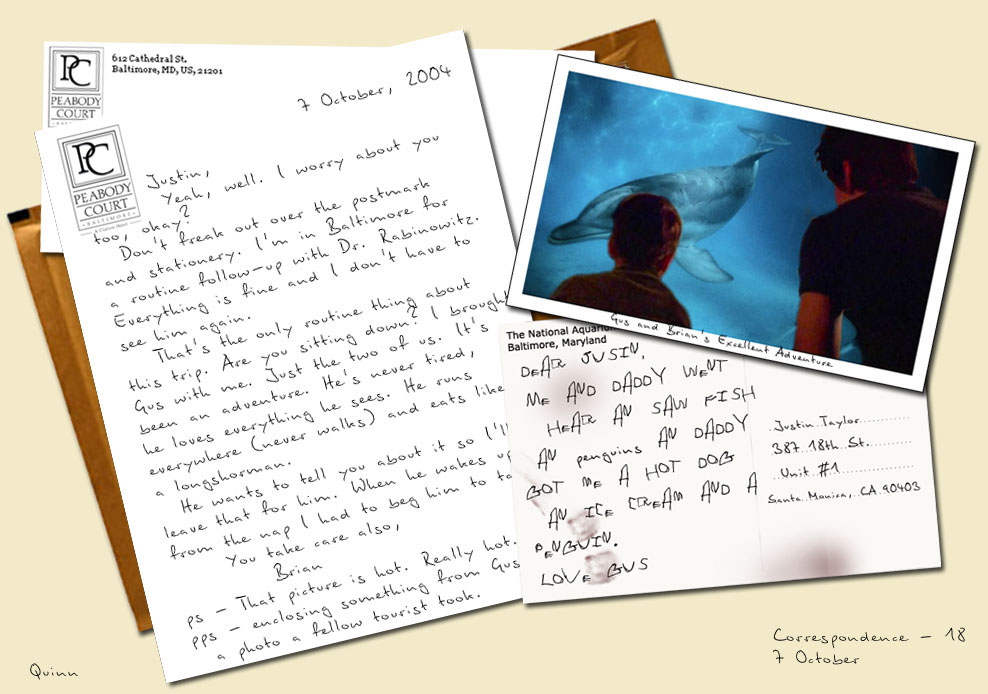 PC
PEABODY
COURT
612 Cathedral St.
Baltimore, MD, US, 21201
PC
PEABODY
COURT
BALTIMORE
7 October, 2004
Justin,
Yeah, well. I worry about you
too, okay?
Don't freak out over the postmark
and stationery. I'm in Baltimore for
a routine follow-up with Dr. Rabinowitz.
Everything is fine and I don't have to
see him again.
That's the only routine thing about
this trip. Are you sitting down? I brought
Gus with me. Just the two of us. It's
been an adventure. He's never tired,
he loves everything he sees. He runs
everywhere (never walks) and eats like
a longshorman.
He wants to tell you about it so I'll
leave that for him. When he wakes up
from the nap I had to beg him to ta
You take care also,
Brian
ps - That picture is hot. Really hot.
pps - enclosing something from Gus
a photo a fellow tourist took.
Gus and Brian's Excellent Adventure
The National Aquarium
Baltimore, Maryland
DEAR JUSIN,
ME AND DADDY WENT
HEAR AN SAW FISH
AN penguins AN DADDY
GOT ME A HOT DOG
AN ICE CREAM AND A
PENGUIN.
LOVE GUS
Justin Taylor
387 18th St.
Unit #1
Santa Monica, CA 90403
Quinn
Correspondence - 18
7 October